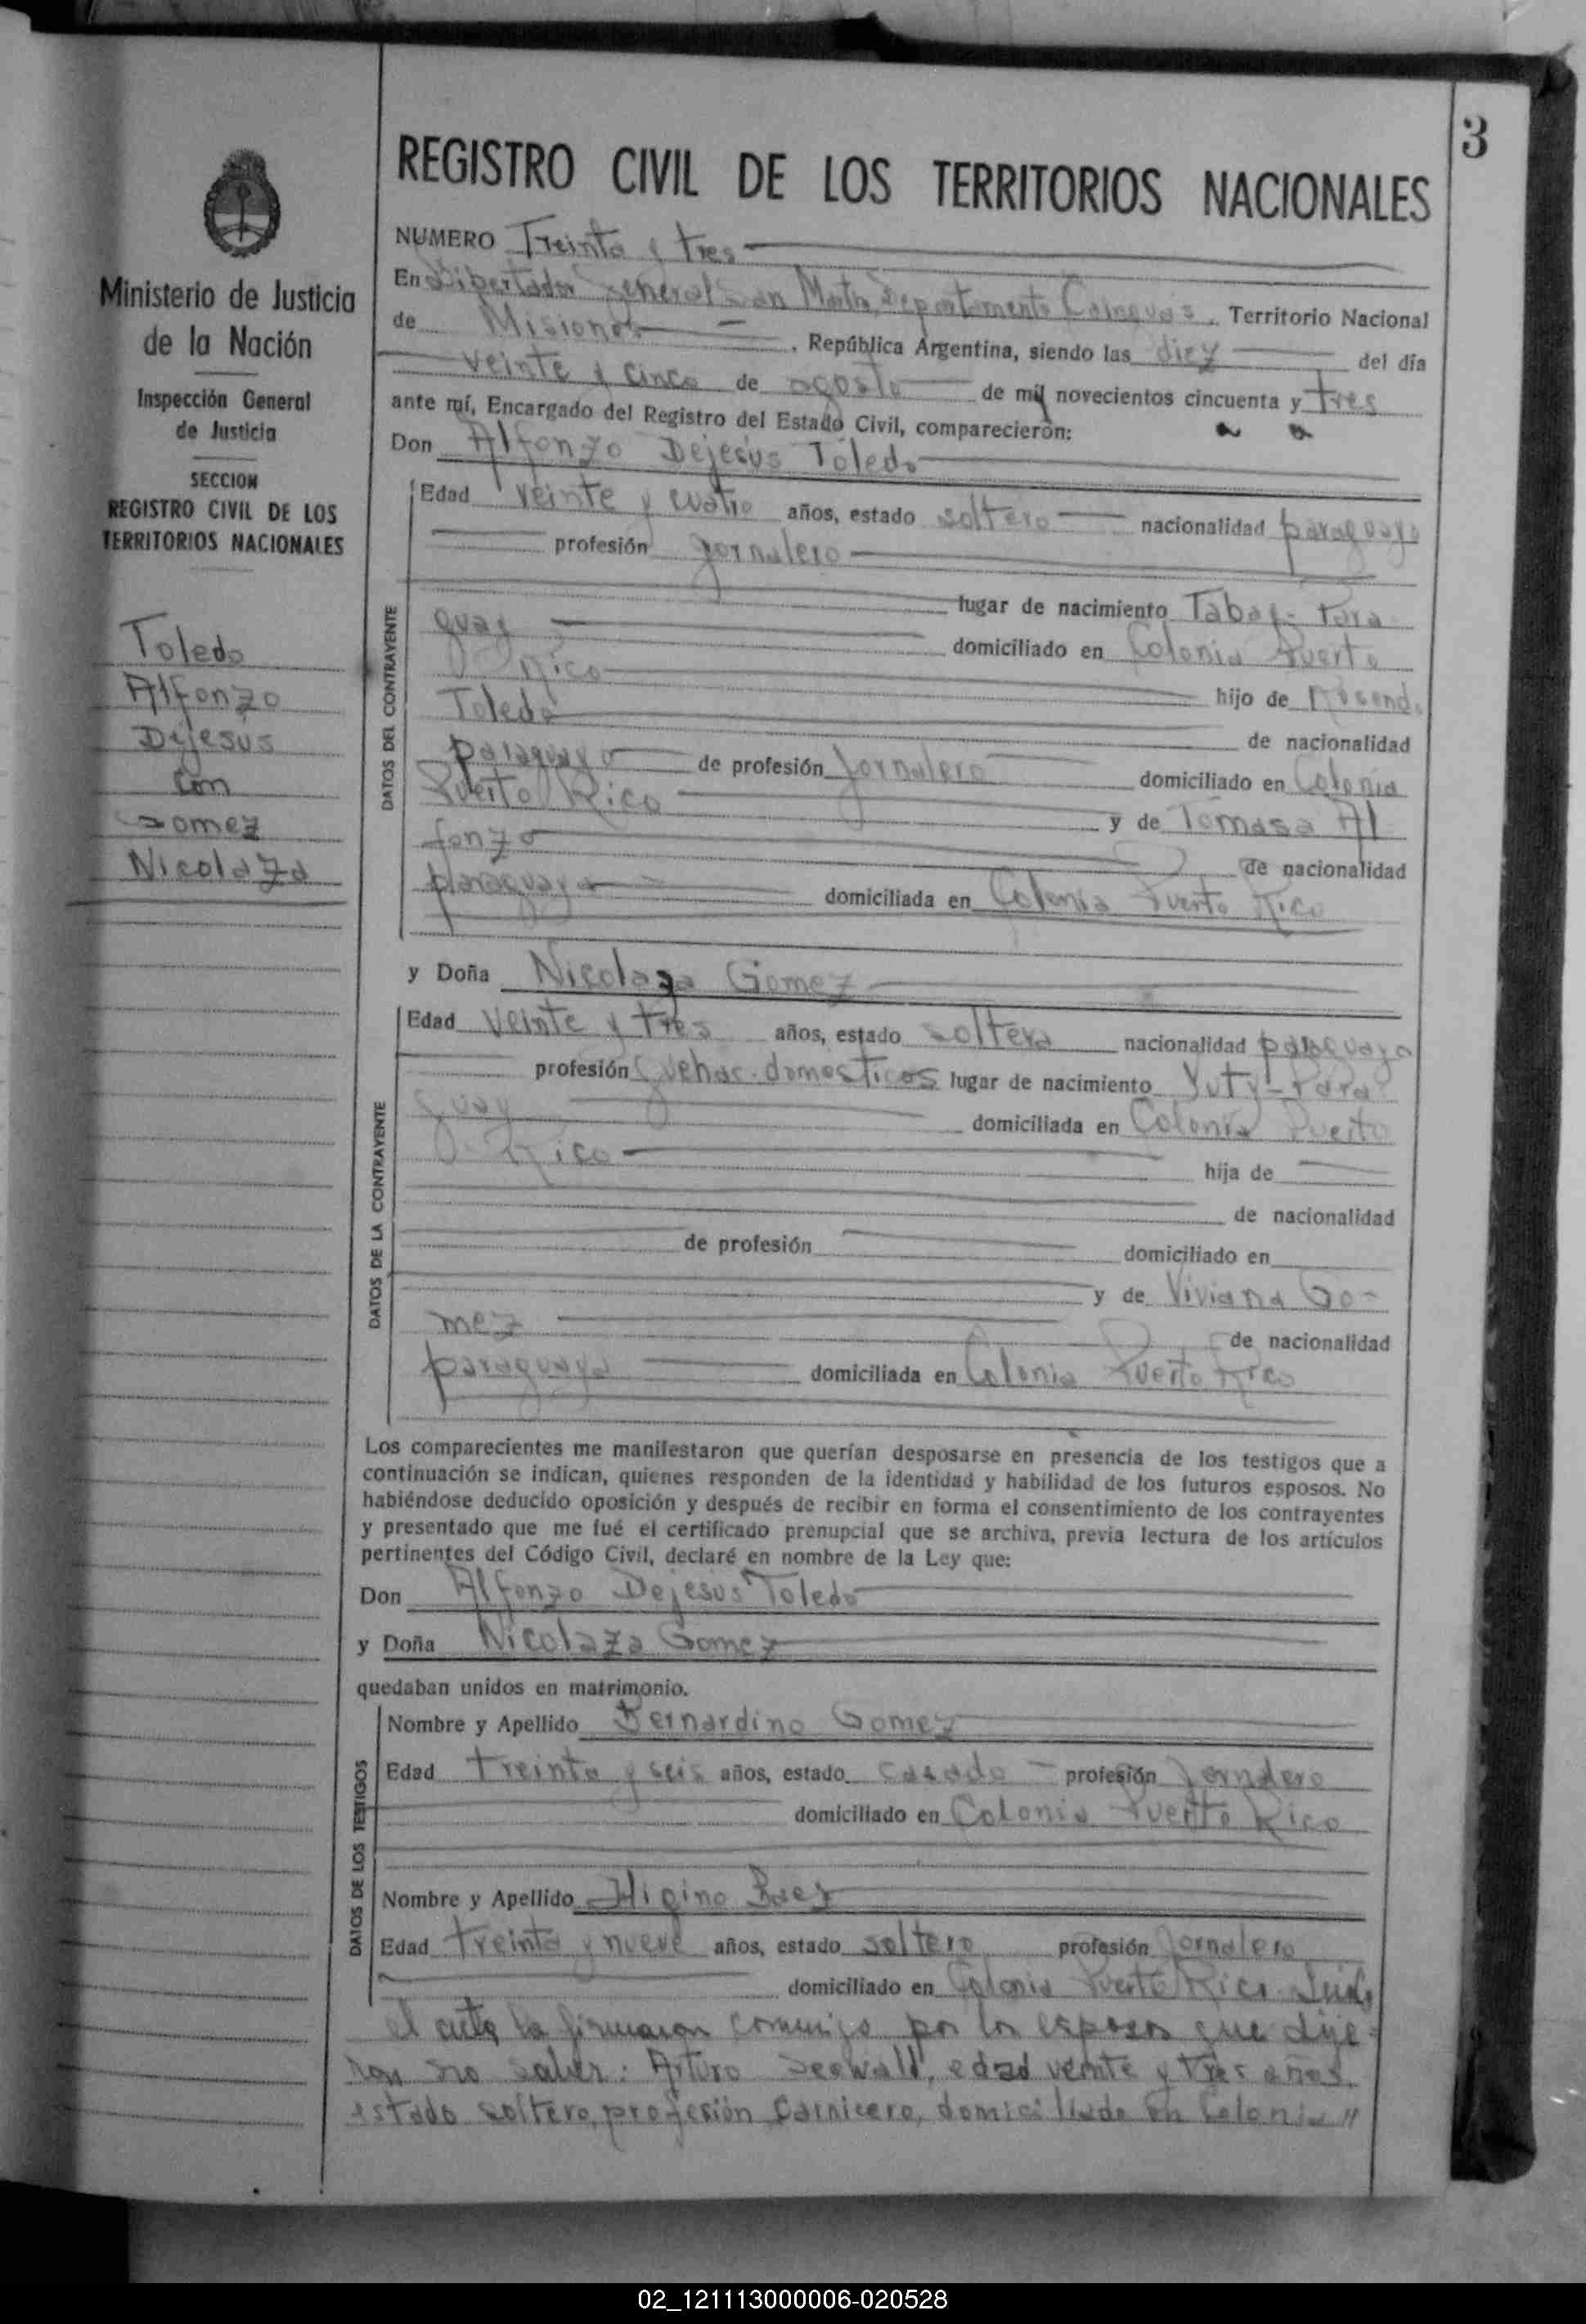 3
REGISTRO CIVIL DE LOS TERRITORIOS NACIONALES
Ministerio de Justicia
de la Nación
Inspección General
de Justicia
SECCION
REGISTRO CIVIL DE LOS
TERRITORIOS NACIONALES
Toledo
Alfonzo
Dejesus
con
Gomez
Nicolaza
NUMERO Treinta y tres
En Libertador General San Martin, Departamento Cainguás, Territorio Nacional
de Misiones, República Argentina, siendo las diez del día
veinte y cinco de agosto de mil novecientos cincuenta y tres
ante mí, Encargado del Registro del Estado Civil, comparecieron:
Don Alfonzo Dejesús Toledo
DATOS DEL CONTRAYENTE
Edad veinte y cuatro años, estado soltero nacionalidad paraguayo
profesión jornalero
lugar de nacimiento Tabay- Para
guay domiciliado en Colonia Puerto
Rico hijo de Rosendo
Toledo de nacionalidad
paraguayo de profesión jornalero domiciliado en Colonia
Puerto Rico y de Tomasa Al
fonzo de nacionalidad
paraguaya domiciliada en Colonia Puerto Rico
y Doña Nicolaza Gomez
DATOS DE LA CONTRAYENTE
Edad veinte y tres años, estado soltera nacionalidad paraguaya
profesión quehac. domesticos lugar de nacimiento Yuty- Para
guay domiciliada en Colonia Puerto
Rico hija de
de nacionalidad
de profesión domiciliado en
y de Viviana Go-
mez de nacionalidad
paraguaya domiciliada en Colonia Puerto Rico
Los comparecientes me manifestaron que querían desposarse en presencia de los testigos que a
continuación se indican, quienes responden de la identidad y habilidad de los futuros esposos. No
habiéndose deducido oposición y después de recibir en forma el consentimiento de los contrayentes
y presentado que me fué el certificado prenupcial que se archiva, previa lectura de los artículos
pertinentes del Código Civil, declaré en nombre de la Ley que:
Don Alfonzo Dejesús Toledo
y Doña Nicolaza Gomez
quedaban unidos en matrimonio.
DATOS DE LOS TESTIGOS
Nombre y Apellido Bernardino Gomez
Edad treinta y seis años, estado casado profesión jornalero
domiciliado en Colonia Puerto Rico
Nombre y Apellido Higino Baez
Edad treinta y nueve años, estado soltero profesión jornalero
domiciliado en Colonia Puerto Rico. Leída
el acta, la firmaron conmigo por los esposos que dije-
ron no saber: Arturo Seewald, edad veinte y tres años,
estado soltero, profesión Carnicero, domiciliado en Colonia "
02_121113000006-020528